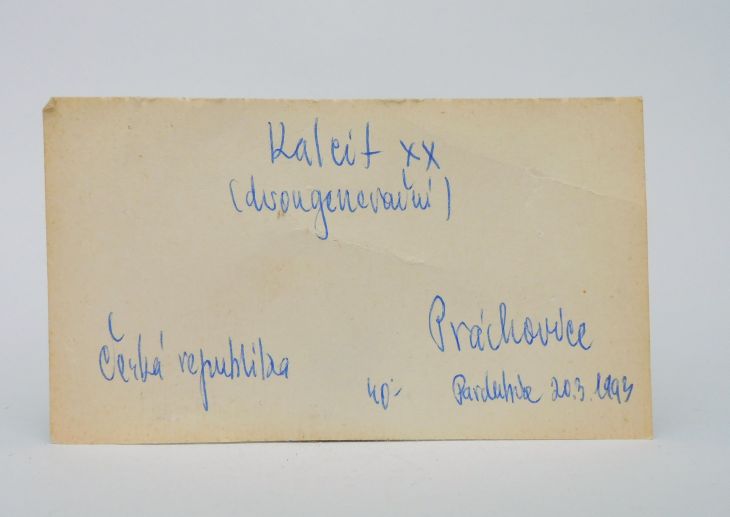 Kalcit xx
(dvougenerační)
Práchovice
Česká republika
40,-
Pardubice 20.3.1993